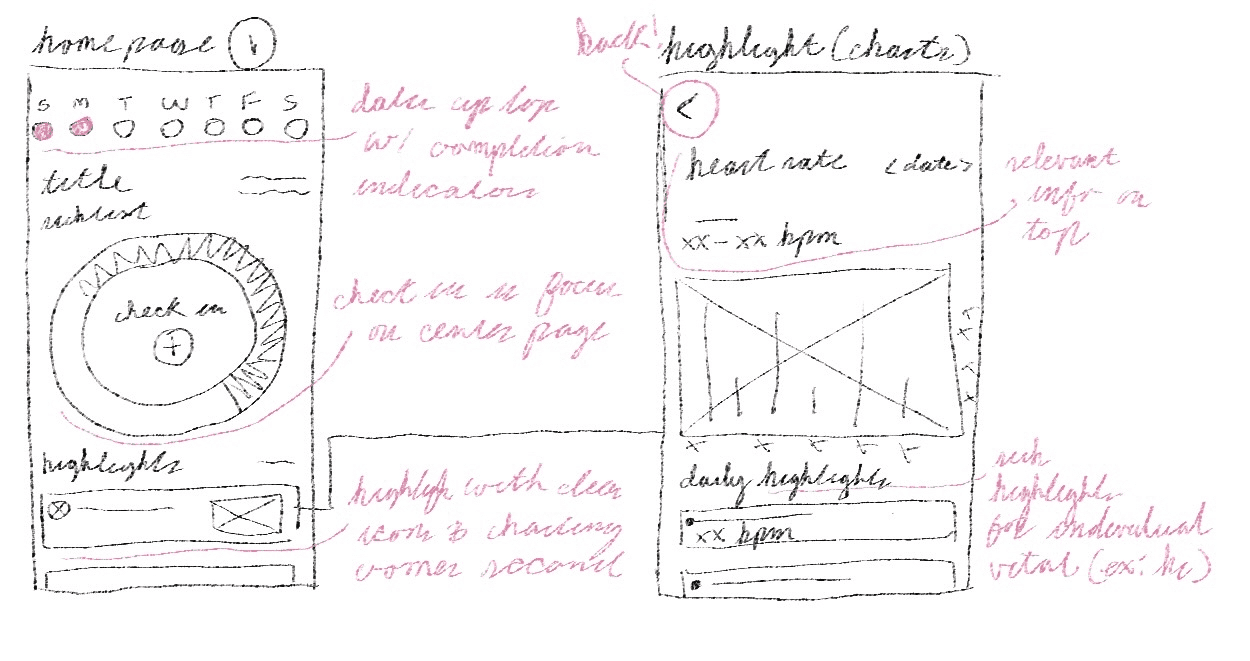 homepage 1
back!
highlight (charts)
S M T W T F S
date up top
w/ completion
indicators
<
heart rate <date>
relevant
info on
top
title
subtext
xx - xx bpm
check in
+
check in is focus
on center page
highlights
daily highlights
highlight with clear
icon & charting
comes second
xx bpm
highlights
for individual
vital (ex: hr)